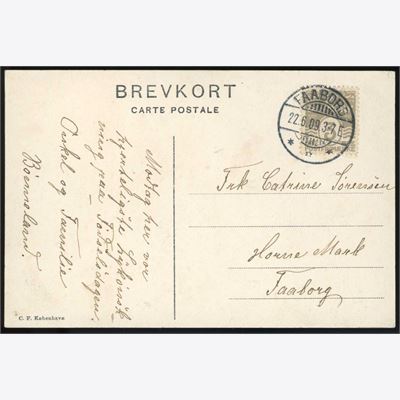 BREVKORT
CARTE POSTALE
FAABORG
22.6.09.3-7E
3
Modtag her vor
hjerteligste Lykønsk-
ning paa Fødselsdagen.
Onkel og Familie
Bøennesland.
Frk Catrine Sørensen
Horne Mark
Faaborg
C. F. København